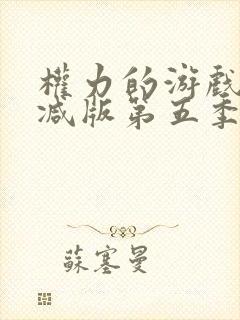 權力的游戲
减版第五季
蘇塞曼